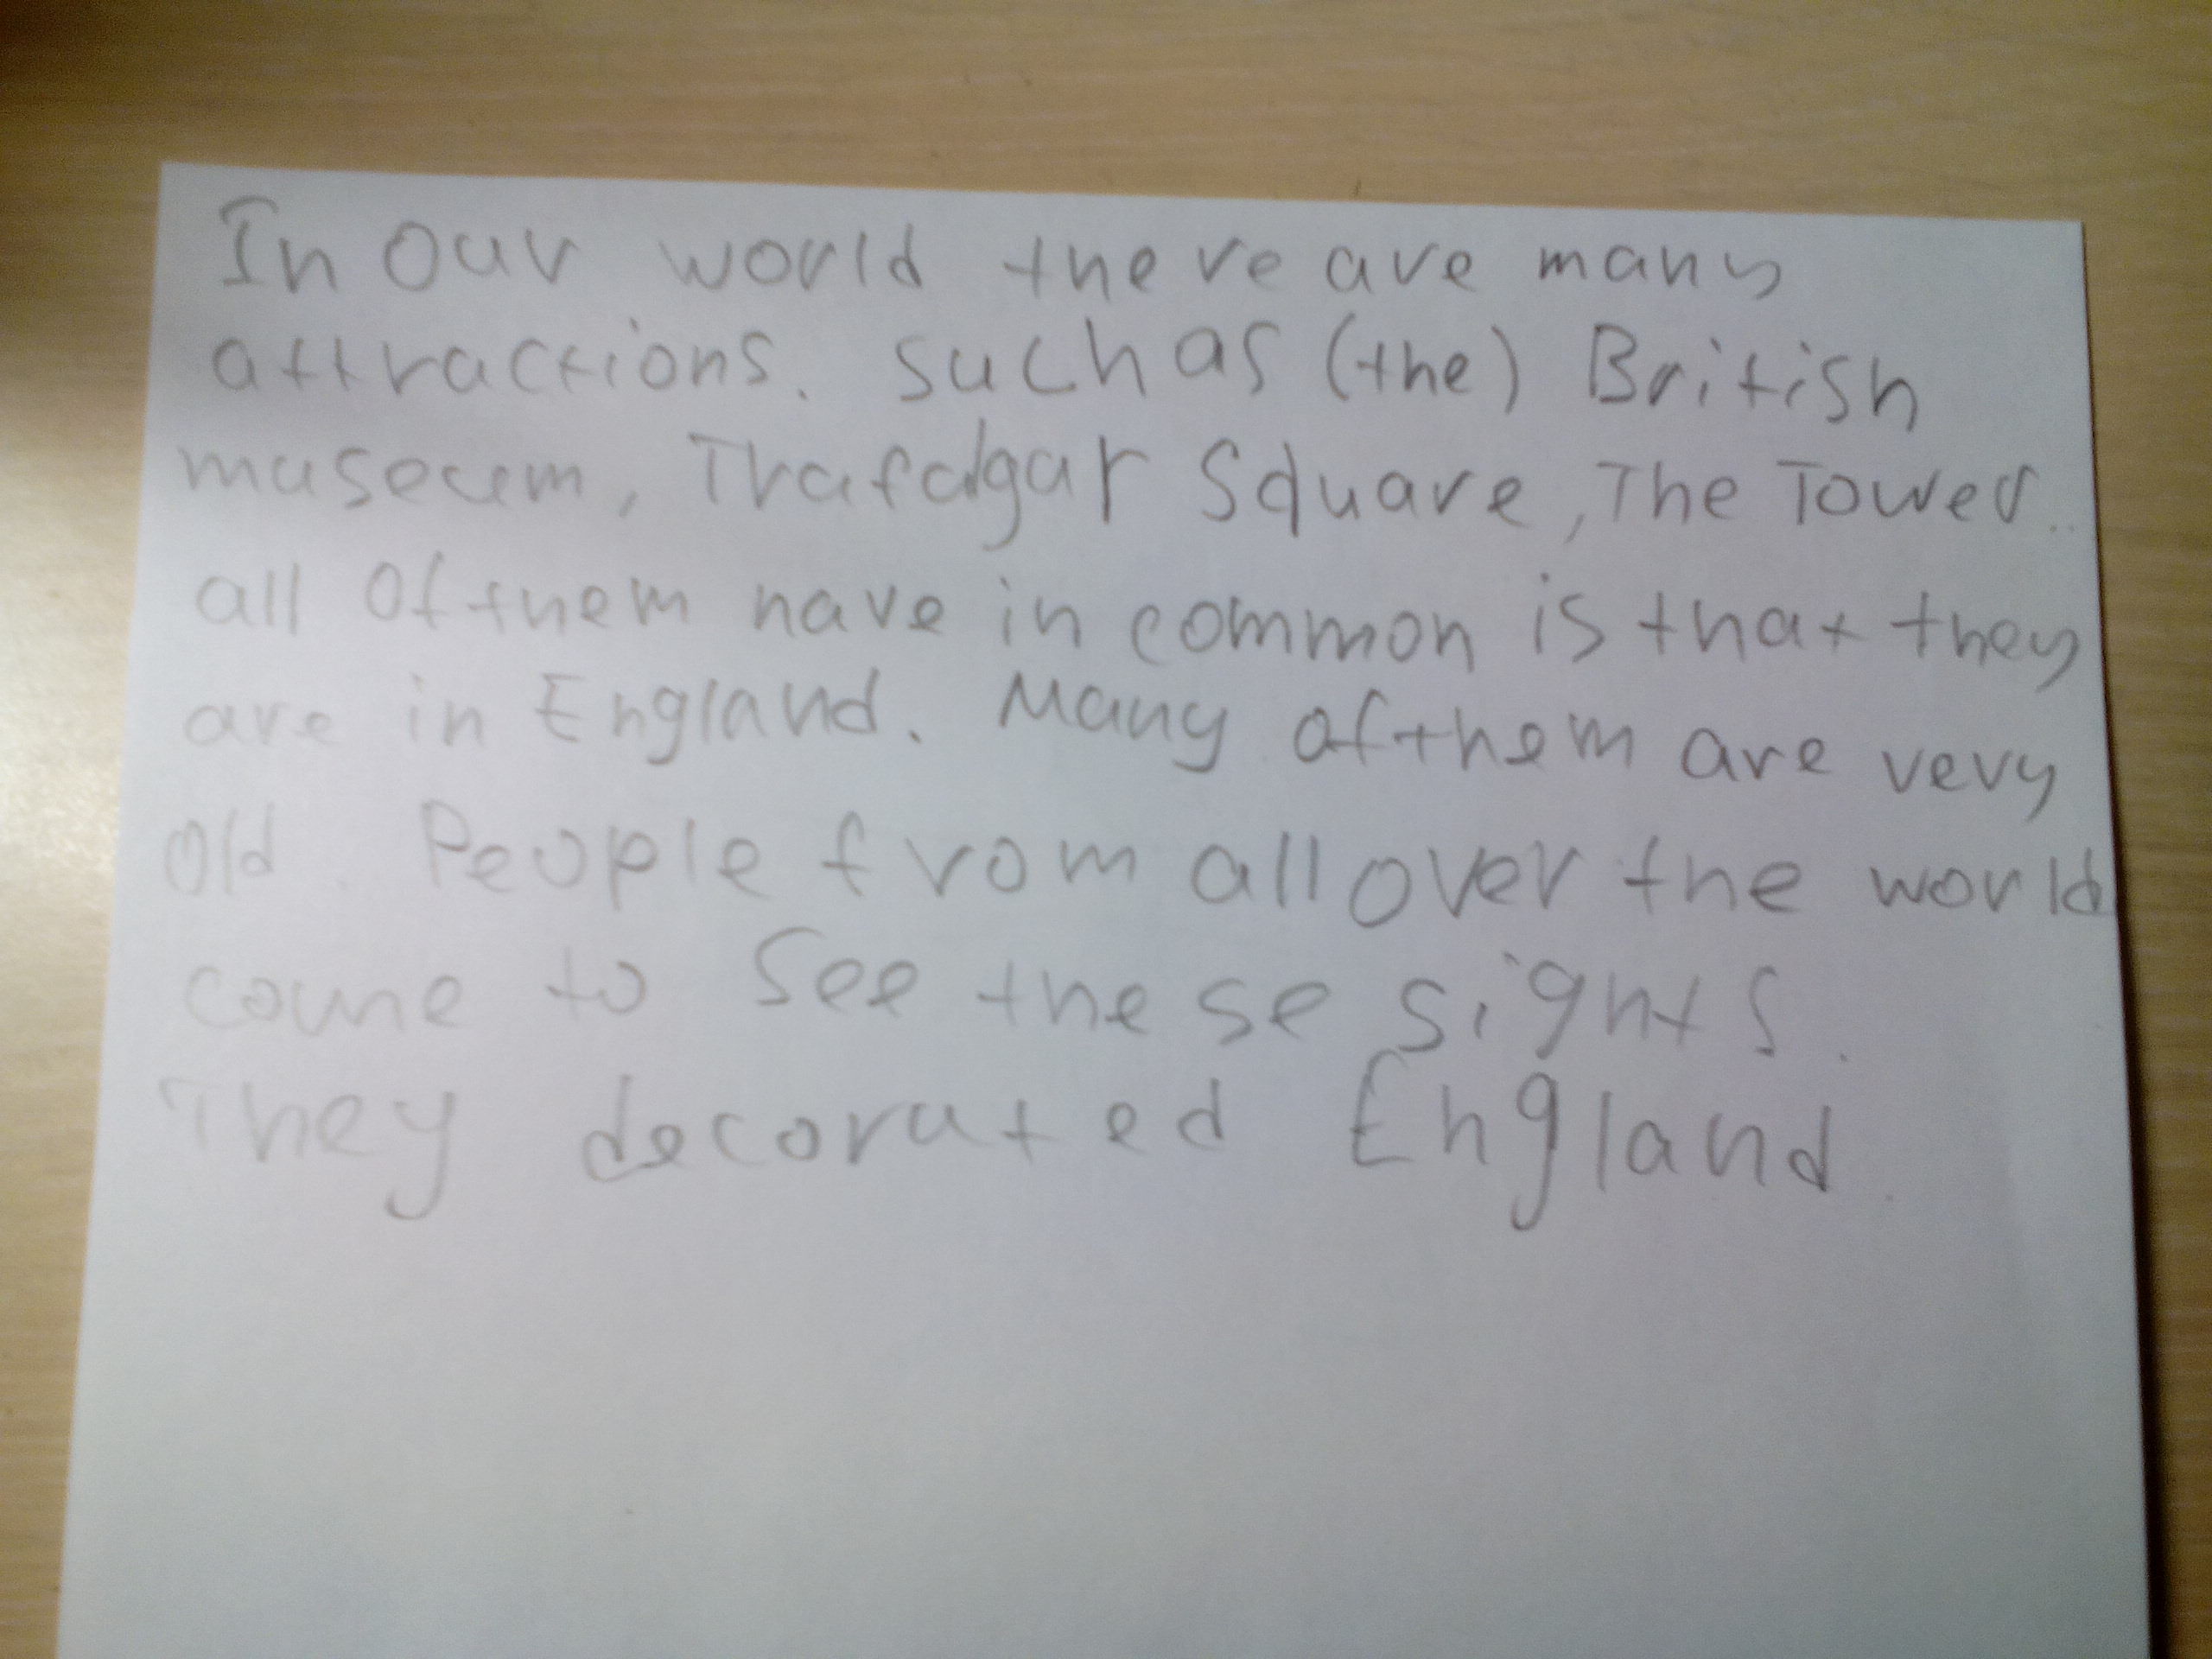 In Our world there are many
attractions. such as (the) British
museum, Trafalgar Square, The Tower..
all of them have in common is that they
are in England. Many of them are very
old. People from all over the world
come to see these sights.
They decorated England.